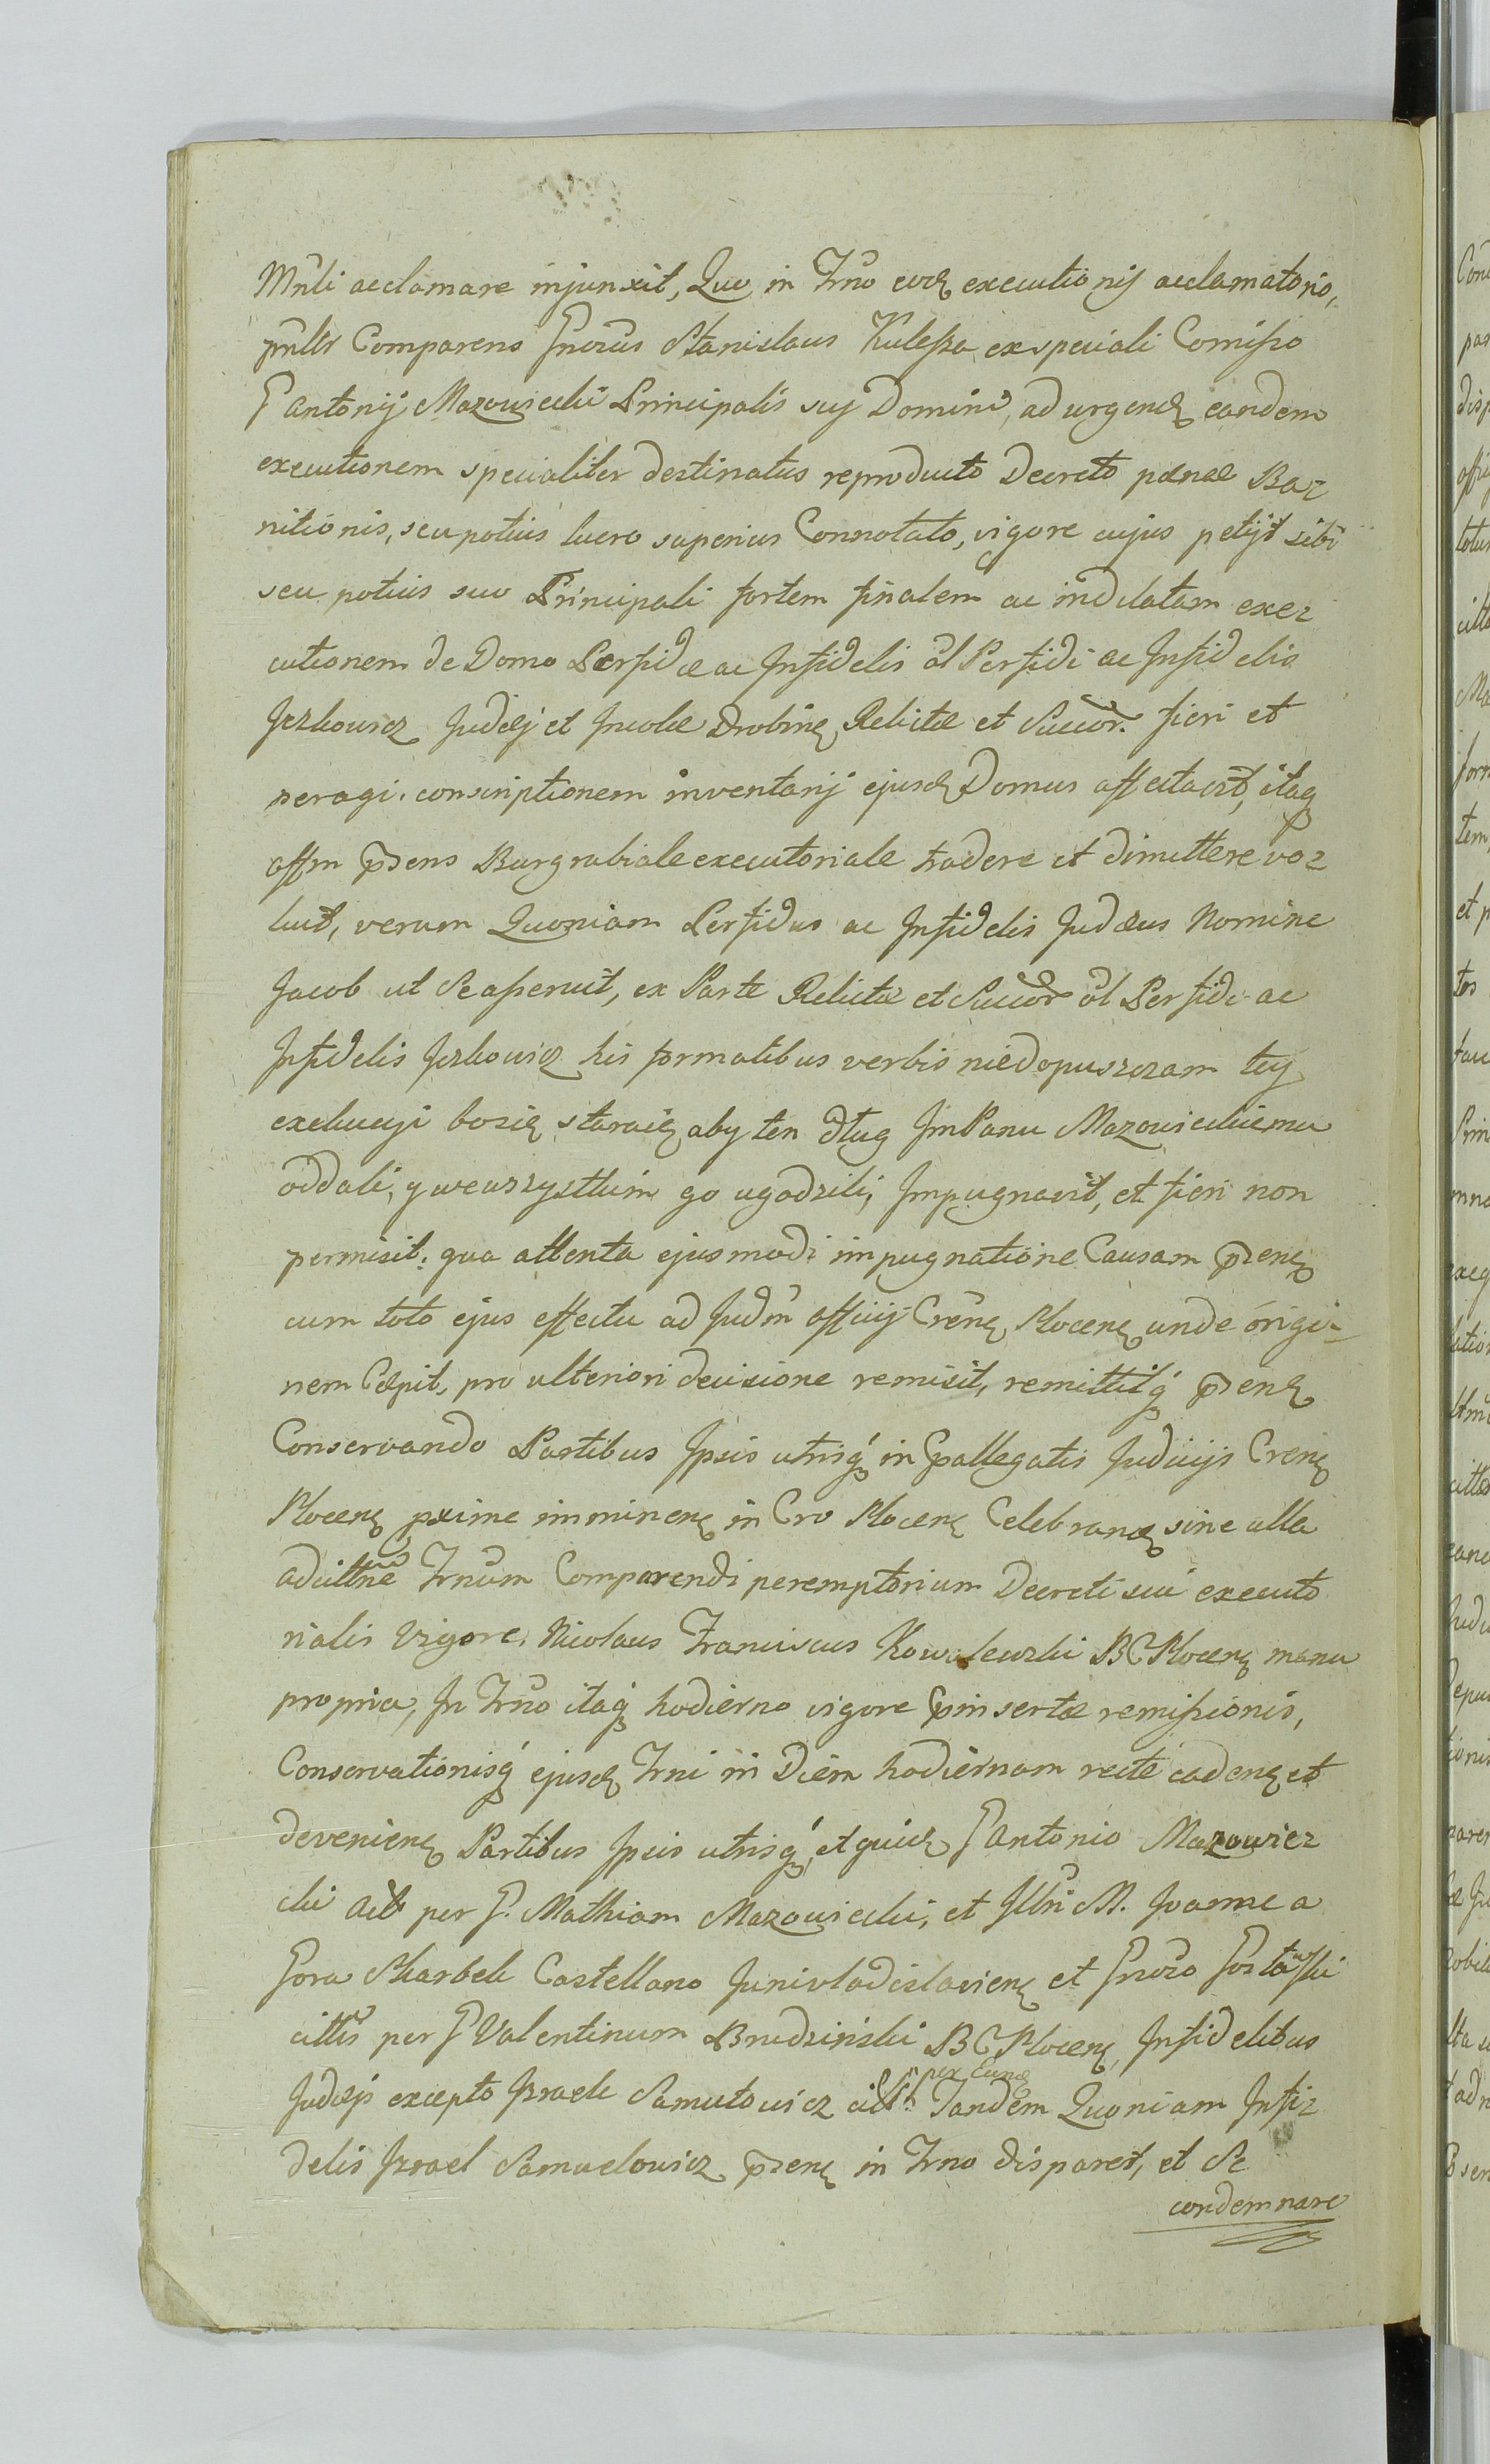 Mnli acclamare injunxit, Quo in Trno eod executionis acclamatorio,
pnltr Comparens Gnosus Stanislaus Kulesza ex speciali Comisso
G Antonij Mazowiecki Principalis sui Domini, ad urgend eandem
executionem specialiter destinatus reproducto Decreto pænæ Ban=
nitionis, seu potius lucro superius Connotato, vigore cujus petijt sibi
seu potius suo Principali fortem finalem ac indilatam exe=
cutionem de Domo Perfidæ ac Infidelis ol Perfidi ac Infidelis
Jezkowicz Judæj et Incolæ Drobinen Relictæ et Succor. fieri et
peragi. conscriptionem inventarij ejusd Domus affectavit, itaq
offm psens Burgrabiale executoriale tradere et dimittere vo=
luit, verum Quoniam Perfidus ac Infidelis Judæus Nomine
Jacob ut Se asseruit, ex Parte Relictæ et Succor ol Perfidi ac
Infidelis Jezkowicz his formalibus verbis niedopuszczam tey
exekucyi bosię staraię aby ten dług ImPanu Mazowieckiemu
oddali, y wewszystkim go ugodzili, Impugnavit, et fieri non
permisit: qua attenta ejusmodi impugnatione Causam psen
cum toto ejus effectu ad Judm officij Cren Plocen unde origi=
nem Cæpit, pro ulteriori decisione remisit, remittitq psen
Conservando Partibus Ipsis utrisq in pallegatis Judicijs Cren
Plocen pxime imminen in Cro Plocen Celebran sine ulla
adcittne Trnum Comparendi peremptorium Decreti sui executo
rialis vigore. Nicolaus Franciscus Kowalewski BCPlocen manu
propria, In Trno itaq hodierno vigore pinsertæ remissionis,
Conservationisq ejusd Trni in Diem hodiernam recte caden et
devenien Partibus Ipsis utrisq, et quid G Antonio Mazowie=
cki Act per G. Mathiam Mazowiecki, et Illri M. Joanne a
Gora Skarbek Castellano Junivladislavien et Gnoso Gostomski
cittis per G Valentinum Brudzinski BCPlocen, Infidelibus
Judæjs excepto Israele Samulowicz citt per Eund Tandem Quoniam Infi=
delis Izrael Samuelowicz psen in Trno disparet, et Se
condemnare